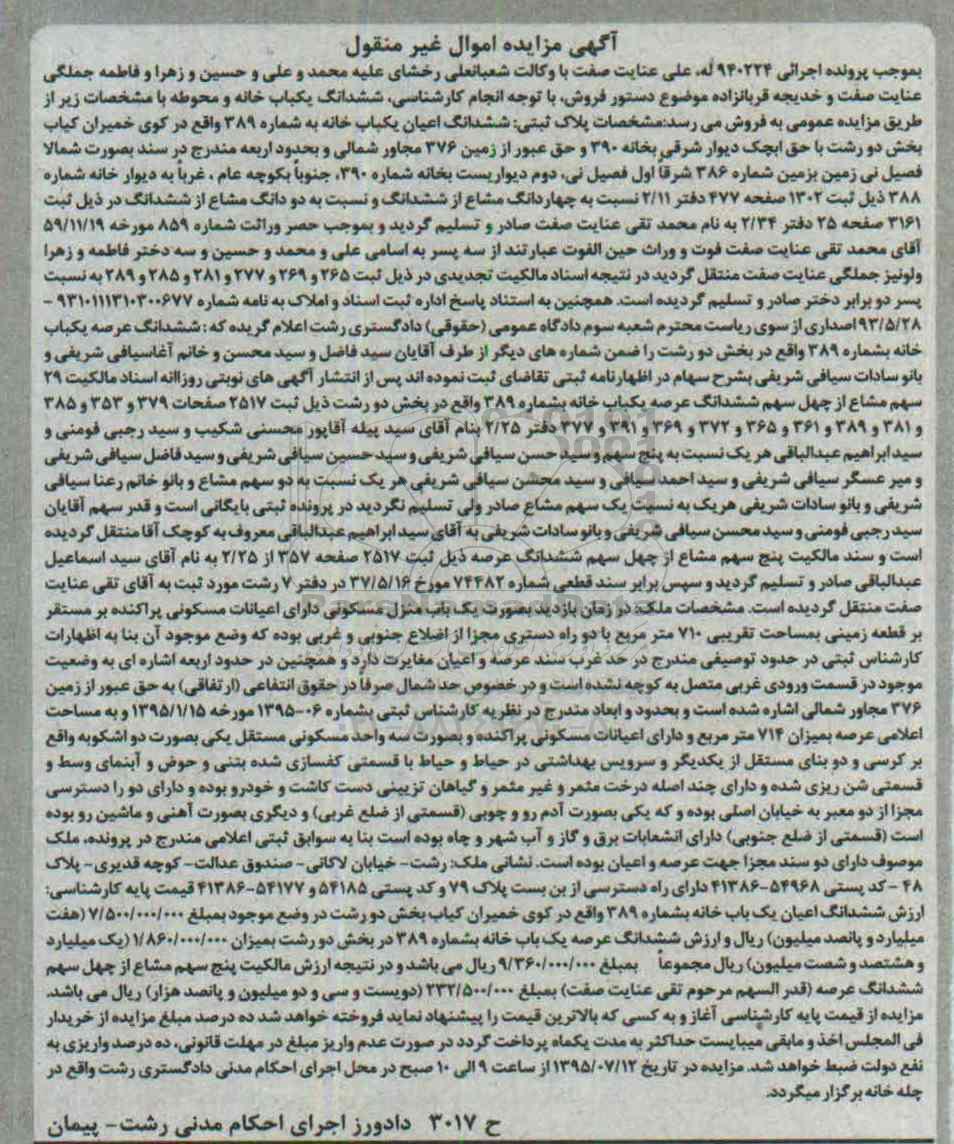 آگهی مزایده اموال غیر منقول
بموجب پرونده اجرائی ۹۴۰۲۲۴ له، علی عنایت صفت با وکالت شعبانعلی رخشای علیه محمد و علی و حسین و زهرا و فاطمه جملگی
عنایت صفت و خدیجه قربانزاده موضوع دستور فروش، با توجه انجام کارشناسی، ششدانگ یکباب خانه و محوطه با مشخصات زیر از
طریق مزایده عمومی به فروش می رسد:مشخصات پلاک ثبتی: ششدانگ اعیان یکباب خانه به شماره ۳۸۹ واقع در کوی خمیران کیاب
بخش دو رشت با حق ابچک دیوار شرقی بخانه ۳۹۰ و حق عبور از زمین ۳۷۶ مجاور شمالی و بحدود اربعه مندرج در سند بصورت شمالا
فصیل نی زمین بزمین شماره ۳۸۶ شرقا اول فصیل نی، دوم دیواریست بخانه شماره ۳۹۰، جنوباً بکوچه عام ، غرباً به دیوار خانه شماره
۳۸۸ ذیل ثبت ۱۳۰۲ صفحه ۴۷۷ دفتر ۲/۱۱ نسبت به چهاردانگ مشاع از ششدانگ و نسبت به دو دانگ مشاع از ششدانگ در ذیل ثبت
۳۱۶۱ صفحه ۲۵ دفتر ۲/۳۴ به نام محمد تقی عنایت صفت صادر و تسلیم گردید و بموجب حصر وراثت شماره ۸۵۹ مورخه ۵۹/۱۱/۱۹
آقای محمد تقی عنایت صفت فوت و وراث حین الفوت عبارتند از سه پسر به اسامی علی و محمد و حسین و سه دختر فاطمه و زهرا
ولونیز جملگی عنایت صفت منتقل گردید در نتیجه اسناد مالکیت تجدیدی در ذیل ثبت ۲۶۵ و ۲۶۹ و ۲۷۷ و ۲۸۱ و ۲۸۵ و ۲۸۹ به نسبت
پسر دو برابر دختر صادر و تسلیم گردیده است. همچنین به استناد پاسخ اداره ثبت اسناد و املاک به نامه شماره ۹۳۱۰۱۱۱۳۱۰۳۰۰۶۷۷ -
۹۳/۵/۲۸ اصداری از سوی ریاست محترم شعبه سوم دادگاه عمومی (حقوقی) دادگستری رشت اعلام گریده که : ششدانگ عرصه یکباب
خانه بشماره ۳۸۹ واقع در بخش دو رشت را ضمن شماره های دیگر از طرف آقایان سید فاضل و سید محسن و خانم آغاسیافی شریفی و
بانو سادات سیافی شریفی بشرح سهام در اظهارنامه ثبتی تقاضای ثبت نموده اند پس از انتشار آگهی های نوبتی روزاانه اسناد مالکیت ۲۹
سهم مشاع از چهل سهم ششدانگ عرصه یکباب خانه بشماره ۳۸۹ واقع در بخش دو رشت ذیل ثبت ۲۵۱۷ صفحات ۳۷۹ و ۳۵۳ و ۳۸۵
و ۳۸۱ و ۳۸۹ و ۳۶۱ و ۳۶۵ و ۳۷۲ و ۳۶۹ و ۳۹۱ و ۳۷۷ دفتر ۲/۲۵ بنام آقای سید پیله آقاپور محسنی شکیب و سید رجبی فومنی و
سید ابراهیم عبدالباقی هر یک نسبت به پنج سهم و سید حسن سیافی شریفی و سید حسین سیافی شریفی و سید فاضل سیافی شریفی
و میر عسگر سیافی شریفی و سید احمد سیافی و سید محسن سیافی شریفی هر یک نسبت به دو سهم مشاع و بانو خانم رعنا سیافی
شریفی و بانو سادات شریفی هریک به نسبت یک سهم مشاع صادر ولی تسلیم نگردید در پرونده ثبتی بایگانی است و قدر سهم آقایان
سید رجبی فومنی و سید محسن سیافی شریفی و بانو سادات شریفی به آقای سید ابراهیم عبدالباقی معروف به کوچک آقا منتقل گردیده
است و سند مالکیت پنج سهم مشاع از چهل سهم ششدانگ عرصه ذیل ثبت ۲۵۱۷ صفحه ۳۵۷ از ۲/۲۵ به نام آقای سید اسماعیل
عبدالباقی صادر و تسلیم گردید و سپس برابر سند قطعی شماره ۷۴۴۸۲ مورخ ۳۷/۵/۱۶ در دفتر ۷ رشت مورد ثبت به آقای تقی عنایت
صفت منتقل گردیده است. مشخصات ملک: در زمان بازدید بصورت یک باب منزل مسکونی دارای اعیانات مسکونی پراکنده بر مستقر
بر قطعه زمینی بمساحت تقریبی ۷۱۰ متر مربع با دو راه دستری مجزا از اضلاع جنوبی و غربی بوده که وضع موجود آن بنا به اظهارات
کارشناس ثبتی در حدود توصیفی مندرج در حد غرب سند عرصه و اعیان مغایرت دارد و همچنین در حدود اربعه اشاره ای به وضعیت
موجود در قسمت ورودی غربی متصل به کوچه نشده است و در خصوص حد شمال صرفا در حقوق انتفاعی (ارتفاقی) به حق عبور از زمین
۳۷۶ مجاور شمالی اشاره شده است و بحدود و ابعاد مندرج در نظریه کارشناس ثبتی بشماره ۰۶-۱۳۹۵ مورخه ۱۳۹۵/۱/۱۵ و به مساحت
اعلامی عرصه بمیزان ۷۱۴ متر مربع و دارای اعیانات مسکونی پراکنده و بصورت سه واحد مسکونی مستقل یکی بصورت دو اشکوبه واقع
بر کرسی و دو بنای مستقل از یکدیگر و سرویس بهداشتی در حیاط و حیاط با قسمتی کفسازی شده بتنی و حوض و آبنمای وسط و
قسمتی شن ریزی شده و دارای چند اصله درخت مثمر و غیر مثمر و گیاهان تزیینی دست کاشت و خودرو بوده و دارای دو را دسترسی
مجزا از دو معبر به خیابان اصلی بوده و که یکی بصورت آدم رو و چوبی (قسمتی از ضلع غربی) و دیگری بصورت آهنی و ماشین رو بوده
است (قسمتی از ضلع جنوبی) دارای انشعابات برق و گاز و آب شهر و چاه بوده است بنا به سوابق ثبتی اعلامی مندرج در پرونده، ملک
موصوف دارای دو سند مجزا جهت عرصه و اعیان بوده است. نشانی ملک: رشت- خیابان لاکانی- صندوق عدالت- کوچه قدیری- پلاک
۴۸ - کد پستی ۵۴۹۶۸-۴۱۳۸۶ دارای راه دسترسی از بن بست پلاک ۷۹ و کد پستی ۵۴۱۸۵ و ۵۴۱۷۷-۴۱۳۸۶ قیمت پایه کارشناسی:
ارزش ششدانگ اعیان یک باب خانه بشماره ۳۸۹ واقع در کوی خمیران کیاب بخش دو رشت در وضع موجود بمبلغ ۷/۵۰۰/۰۰۰/۰۰۰ (هفت
میلیارد و پانصد میلیون) ریال و ارزش ششدانگ عرصه یک باب خانه بشماره ۳۸۹ در بخش دو رشت بمیزان ۱/۸۶۰/۰۰۰/۰۰۰ (یک میلیارد
و هشتصد و شصت میلیون) ریال مجموعاً بمبلغ ۹/۳۶۰/۰۰۰/۰۰۰ ریال می باشد و در نتیجه ارزش مالکیت پنج سهم مشاع از چهل سهم
ششدانگ عرصه (قدر السهم مرحوم تقی عنایت صفت) بمبلغ ۲۳۲/۵۰۰/۰۰۰ (دویست و سی و دو میلیون و پانصد هزار) ریال می باشد.
مزایده از قیمت پایه کارشناسی آغاز و به کسی که بالاترین قیمت را پیشنهاد نماید فروخته خواهد شد ده درصد مبلغ مزایده از خریدار
فی المجلس اخذ و مابقی میبایست حداکثر به مدت یکماه پرداخت گردد در صورت عدم واریز مبلغ در مهلت قانونی، ده درصد واریزی به
نفع دولت ضبط خواهد شد. مزایده در تاریخ ۱۳۹۵/۰۷/۱۲ از ساعت ۹ الی ۱۰ صبح در محل اجرای احکام مدنی دادگستری رشت واقع در
چله خانه برگزار میگردد.
ح ۳۰۱۷ دادورز اجرای احکام مدنی رشت- پیمان